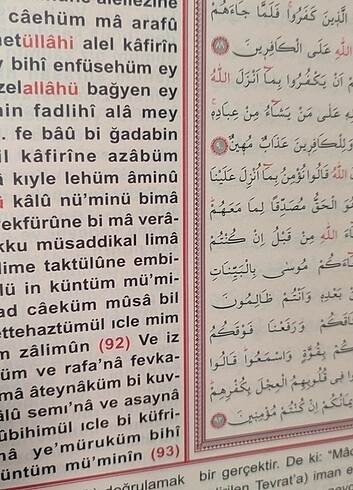 câehüm mâ arafû
netüllâhi alel kâfirîn
bihî enfüsehüm ey
zelallâhü bağyen ey
min fadlihî alâ mey
. fe bâû bi ğadabin
il kâfirîne azâbüm
â kıyle lehüm âminû
kâlû nü'minü bimâ
ekfürûne bi mâ verâ-
kku müsaddikal limâ
lime taktülûne embi-
lü in küntüm mü'mi-
ad câeküm mûsâ bil
ettehaztümül ıcle mim
m zâlimûn (92) Ve iz
üm ve rafa'nâ fevka-
mâ âteynâküm bi kuv-
âlû semı'nâ ve asaynâ
ûbihimül ıcle bi küfri-
mâ ye'mürukum bihî
üntüm mü'minîn (93)
الَّذِينَ كَفَرُوا فَلَمَّا جَاءَهُمْ
اللَّهِ عَلَى الْكَافِرِينَ
اَنْ يَكْفُرُوا بِمَا اَنْزَلَ اللَّهُ
عَلٰى مَنْ يَشَاءُ مِنْ عِبَادِهِ
وَلِلْكَافِرِينَ عَذَابٌ مُهِينٌ
اللَّهُ قَالُوا نُؤْمِنُ بِمَا اُنْزِلَ عَلَيْنَا
هُوَ الْحَقُّ مُصَدِّقًا لِمَا مَعَهُمْ
اللَّهِ مِنْ قَبْلُ اِنْ كُنْتُمْ
جَاءَكُمْ مُوسٰى بِالْبَيِّنَاتِ
بَعْدِهِ وَاَنْتُمْ ظَالِمُونَ
وَرَفَعْنَا فَوْقَكُمُ
بِقُوَّةٍ وَاسْمَعُوا قَالُوا
فِى قُلُوبِهِمُ الْعِجْلَ بِكُفْرِهِمْ
اِنْ كُنْتُمْ مُؤْمِنِينَ
doğrulamak bir gerçektir. De ki: "Mâd
Tevrat'a) iman e